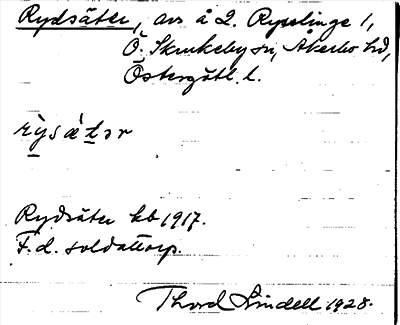 Rydsäter, avs å 2. Rysslinge 1,
Ö. Skrukeby sn, Åkerbo hd,
Östergötl. l.
rỳsǽtər
Rydsäter kb 1917.
F. d. soldattorp.
Thord Lindell 1928.